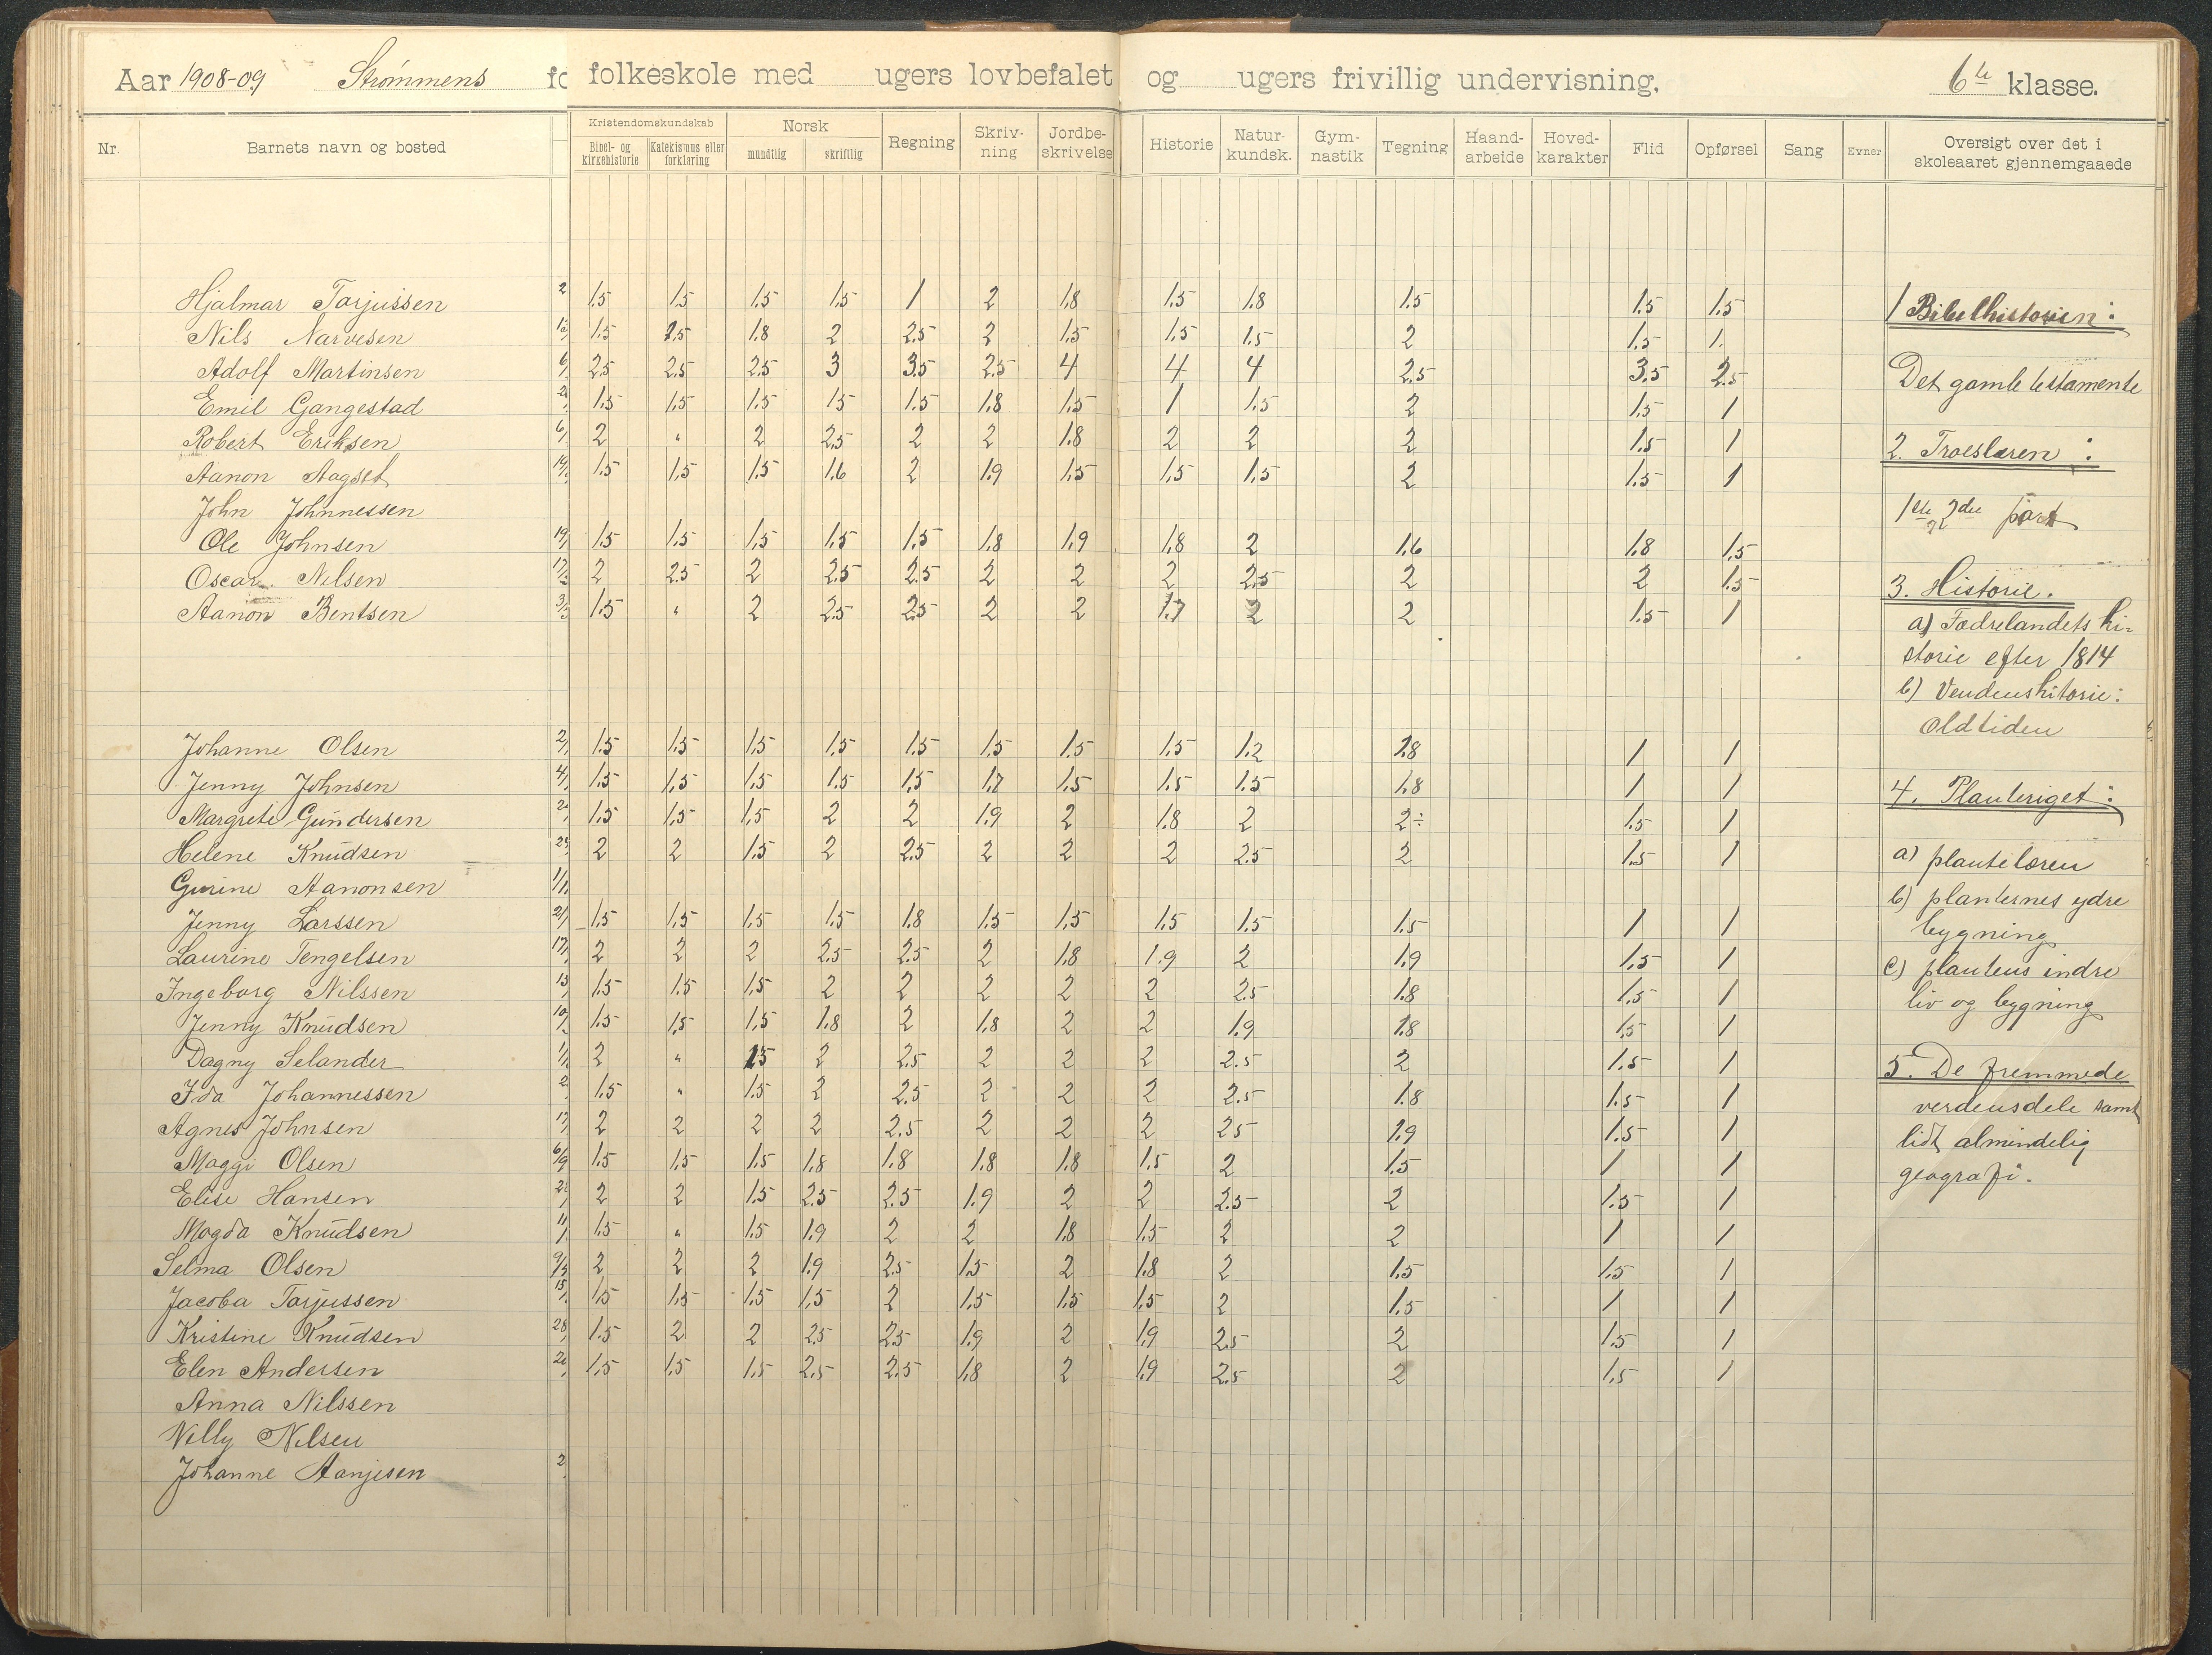 Aar 1908-09 Strømmens fo folkeskole med ugers lovbefalet og ugers frivillig undervisning. 6te klasse.
Nr. Barnets navn og bosted Kristendomskundskab Norsk Regning Skriv-ning Jordbe-skrivelse Historie Natur-kundsk. Gym-nastik Tegning Haand-arbeide Hoved-karakter Flid Opførsel Sang Evner Oversigt over det i skoleaaret gjennemgaaede
Bibel- og kirkehistorie Katekismus eller forklaring mundtlig skriftlig
Hjalmar Torjussen 2 1.5 1.5 1.5 1.5 1 2 1.8 1.5 1.8 1.5 1.5 1.5 1 Bibelhistorien:
Nils Narvesen 1.5 2.5 1.8 2 2.5 2 1.5 1.5 1.5 2 1.5 1.
Adolf Martinsen 6/ 2.5 2.5 2.5 3 3.5 2.5 4 4 4 2.5 3.5 2.5 Det gamle testamente
Emil Gangestad 1.5 1.5 1.5 1.5 1.5 1.8 1.5 1 1.5 2 1.5 1
Robert Eriksen 6/ 2 " 2 2.5 2 2 1.8 2 2 2 1.5 1 2. Troeslæren:
Aanon Aagset 1.5 1.5 1.5 1.6 2 1.9 1.5 1.5 1.5 2 1.5 1
John Johnnessen 1ste 2den part
Ole Johnsen 19/ 1.5 1.5 1.5 1.5 1.5 1.8 1.9 1.8 2 1.6 1.8 1.5
Oscar Nilsen 2 2.5 2 2.5 2.5 2 2 2 2.5 2 2 1.5 3. Historie.
Aanon Bentsen 1.5 " 2 2.5 2.5 2 2 1.7 2 2 1.5 1 a) Fædrelandets hi-
storie efter 1814
b) Verdenshitorie:
Oldtiden
Johanne Olsen 2/ 1.5 1.5 1.5 1.5 1.5 1.5 1.5 1.5 1.2 1.8 1 1
Jenny Johnsen 4/ 1.5 1.5 1.5 1.5 1.5 1.7 1.5 1.5 1.5 1.8 1 1 4. Planteriget:
Margrete Gundersen 1.5 1.5 1.5 2 2 1.9 2 1.8 2 2÷ 1.5 1
Helene Knudsen 2 2 1.5 2 2.5 2 2 2 2.5 2 1.5 1 a) plantelæren
Gurine Aanonsen 1/11 b) planternes ydre
Jenny Larssen 21/ 1.5 1.5 1.5 1.5 1.8 1.5 1.5 1.5 1.5 1.5 1 1 bygning
Laurine Tengelsen 17/ 2 2 2 2.5 2.5 2 1.8 1.9 2 1.9 1.5 1 c) plantens indre
Ingeborg Nilssen 13 1.5 1.5 1.5 2 2 2 2 2 2.5 1.8 1.5 1 liv og bygning
Jenny Knudsen 10/ 1.5 1.5 1.5 1.8 2 1.8 2 2 1.9 1.8 1.5 1
Dagny Selander 2 " 1.5 2 2.5 2 2 2 2.5 2 1.5 1 5. De fremmede
Ida Johannessen 2 1.5 " 1.5 2 2.5 2 2 2 2.5 1.8 1.5 1 verdensdele samt
Agnes Johnsen 2 2 2 2 2.5 2 2 2 2.5 1.9 1.5 1 lidt almindelig
Maggi Olsen 6/9 1.5 1.5 1.5 1.8 1.8 1.8 1.8 1.5 2 1.5 1 1 geografi.
Elise Hansen 2 2 1.5 2.5 2.5 1.9 2 2 2.5 2 1.5 1
Magda Knudsen 1.5 " 1.5 1.9 2 2 1.8 1.5 2 2 1 1
Selma Olsen 2 2 2 1.9 2.5 1.5 2 1.8 2 1.5 1.5 1
Jacoba Torjussen 1.5 1.5 1.5 1.5 2 1.5 1.5 1.5 2 1.5 1 1
Kristine Knudsen 28/ 1.5 2 2 2.5 2.5 1.9 2 1.9 2.5 2 1.5 1
Elen Andersen 1.5 1.5 1.5 2.5 2.5 1.8 2 1.9 2.5 2 1.5 1
Anna Nilssen
Villy Nilsen
Johanne Aanjesen 2